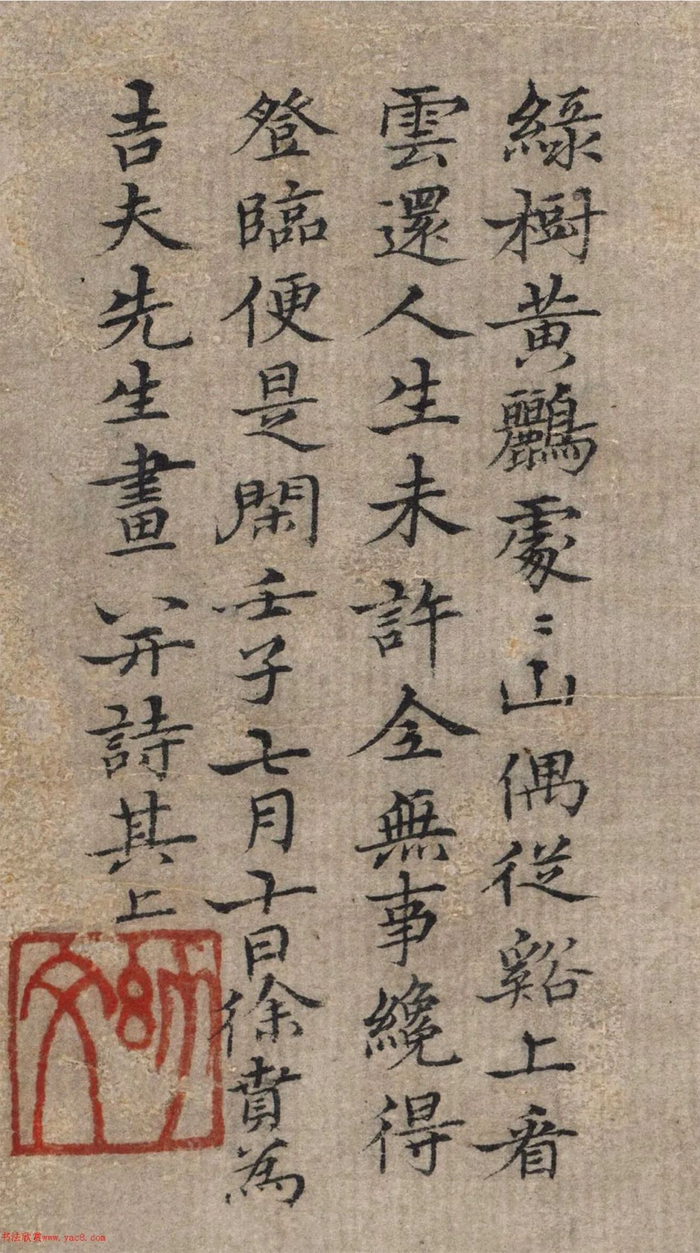 綠樹黃鸝處〻山偶從谿上看
雲還人生未許全無事纔得
登臨便是閑壬子七月十日徐賁為
吉夫先生畫并詩其上
書法欣賞www.yac8.com